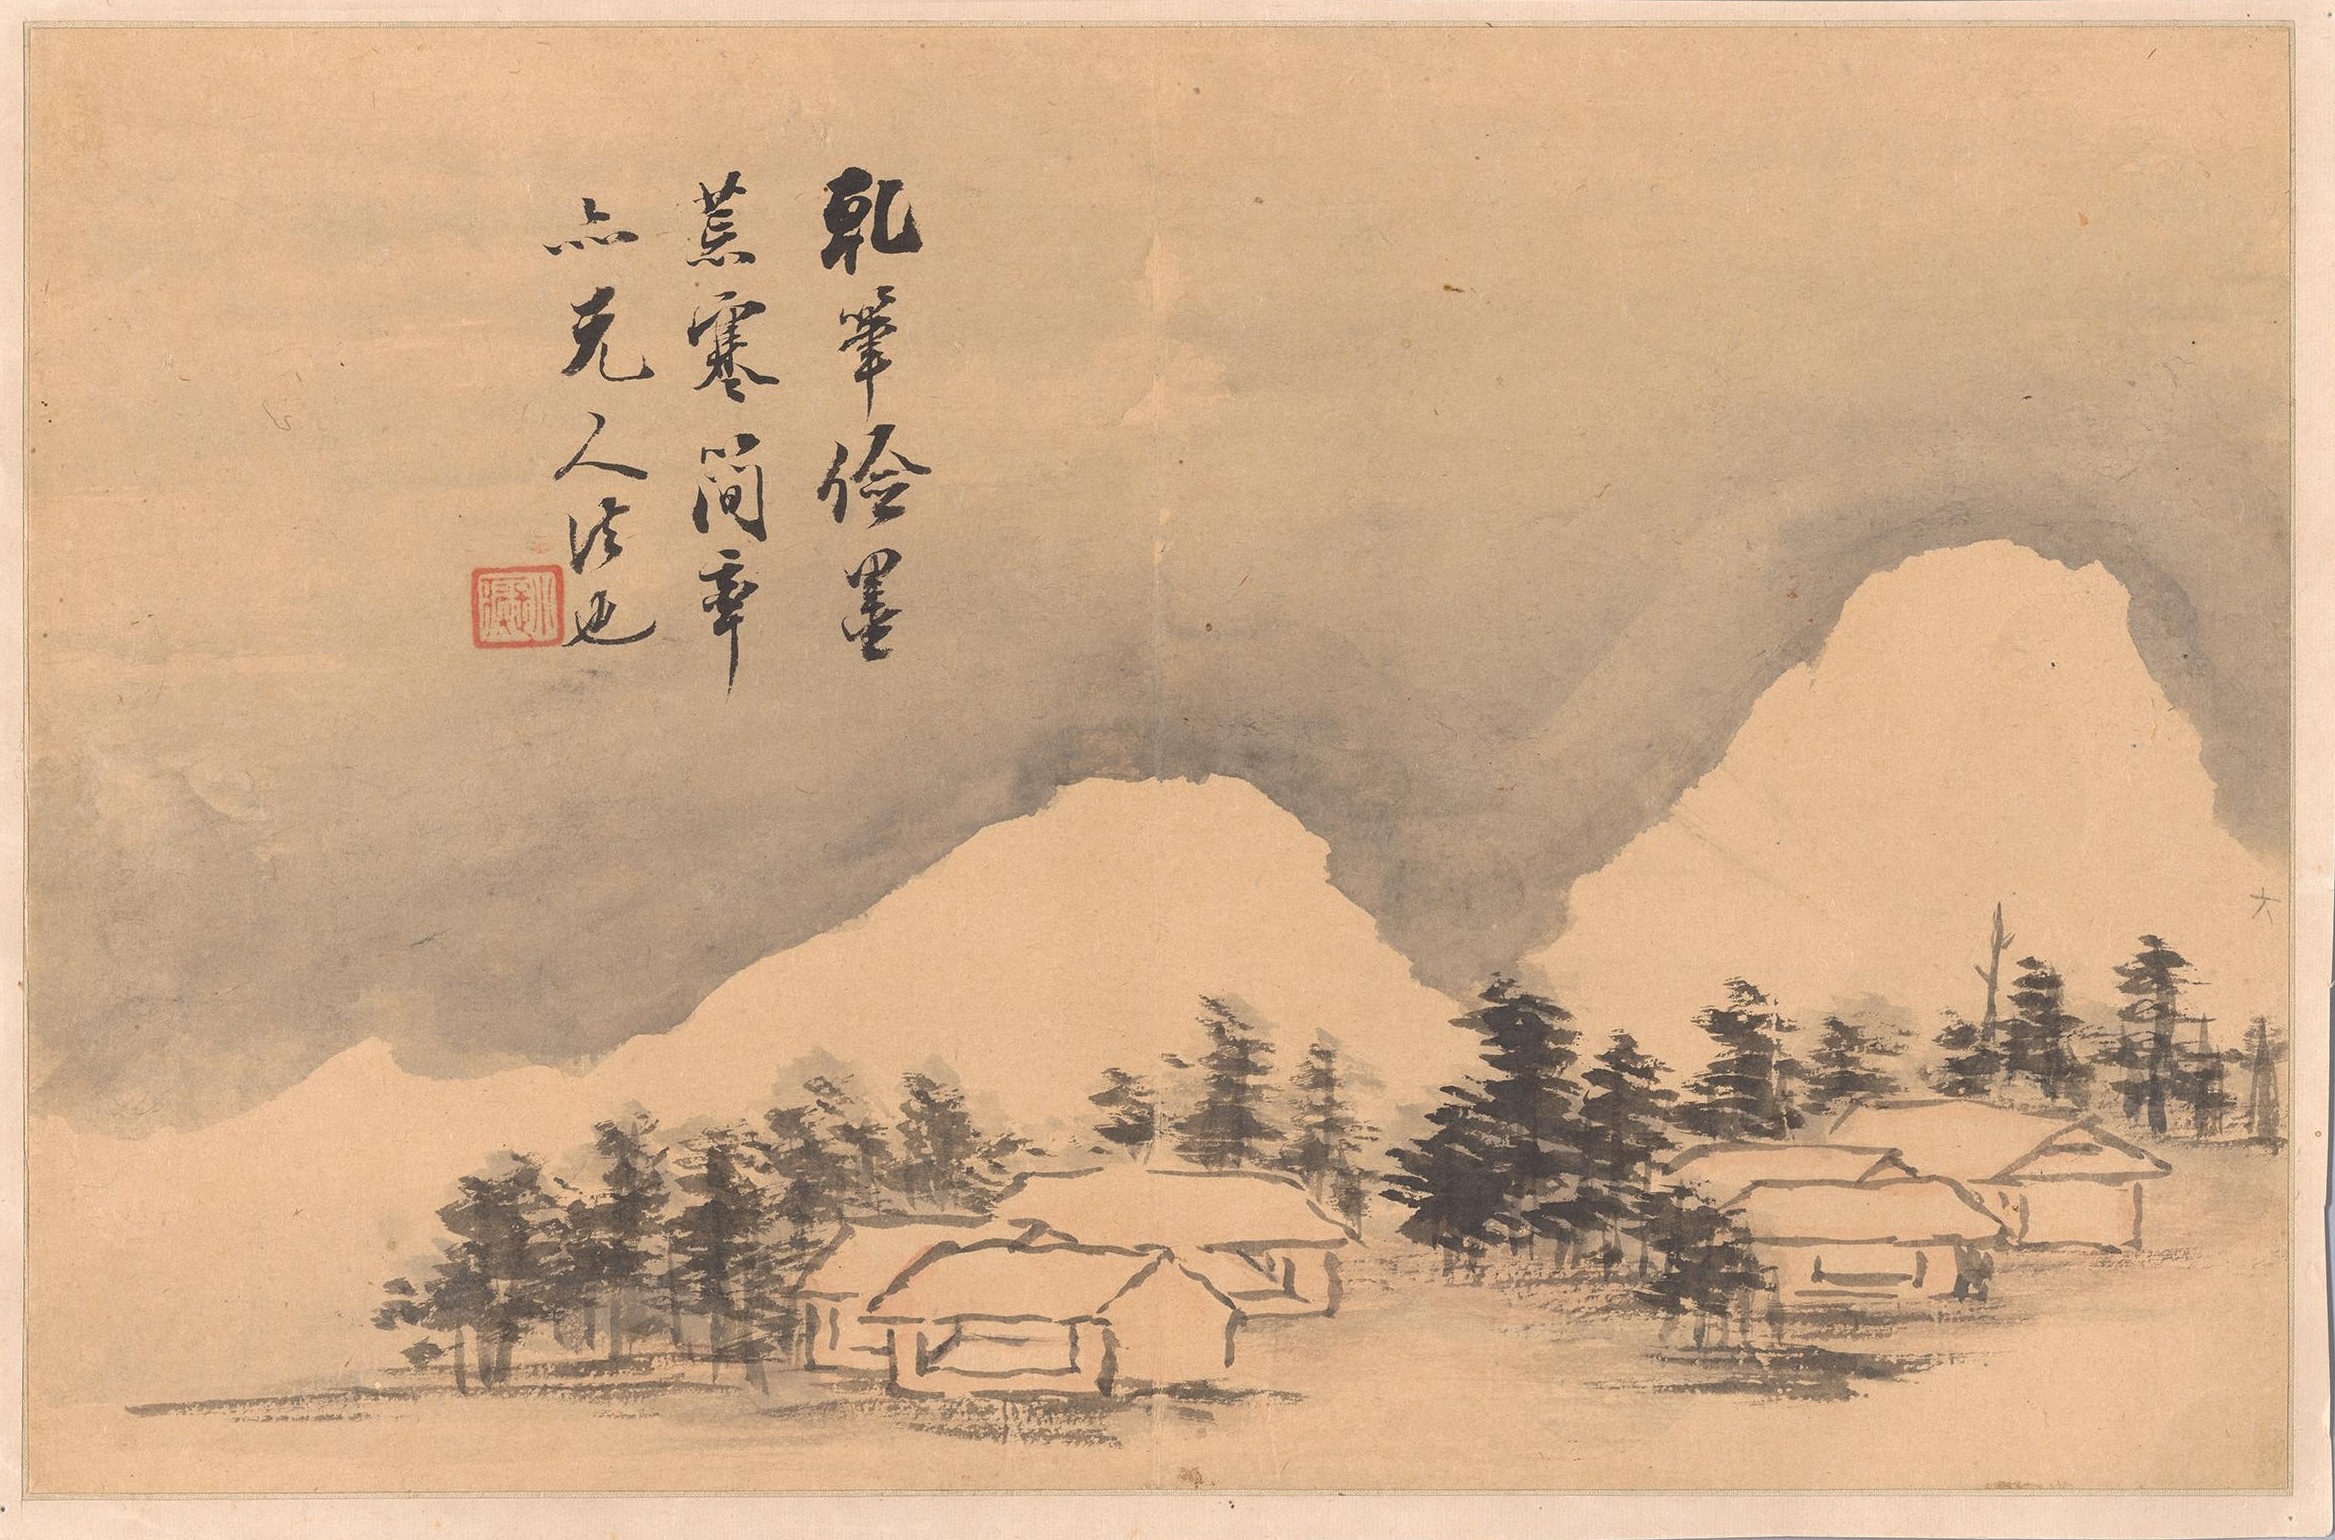 乾筆儉墨
荒寒簡率
亦元人法也
六